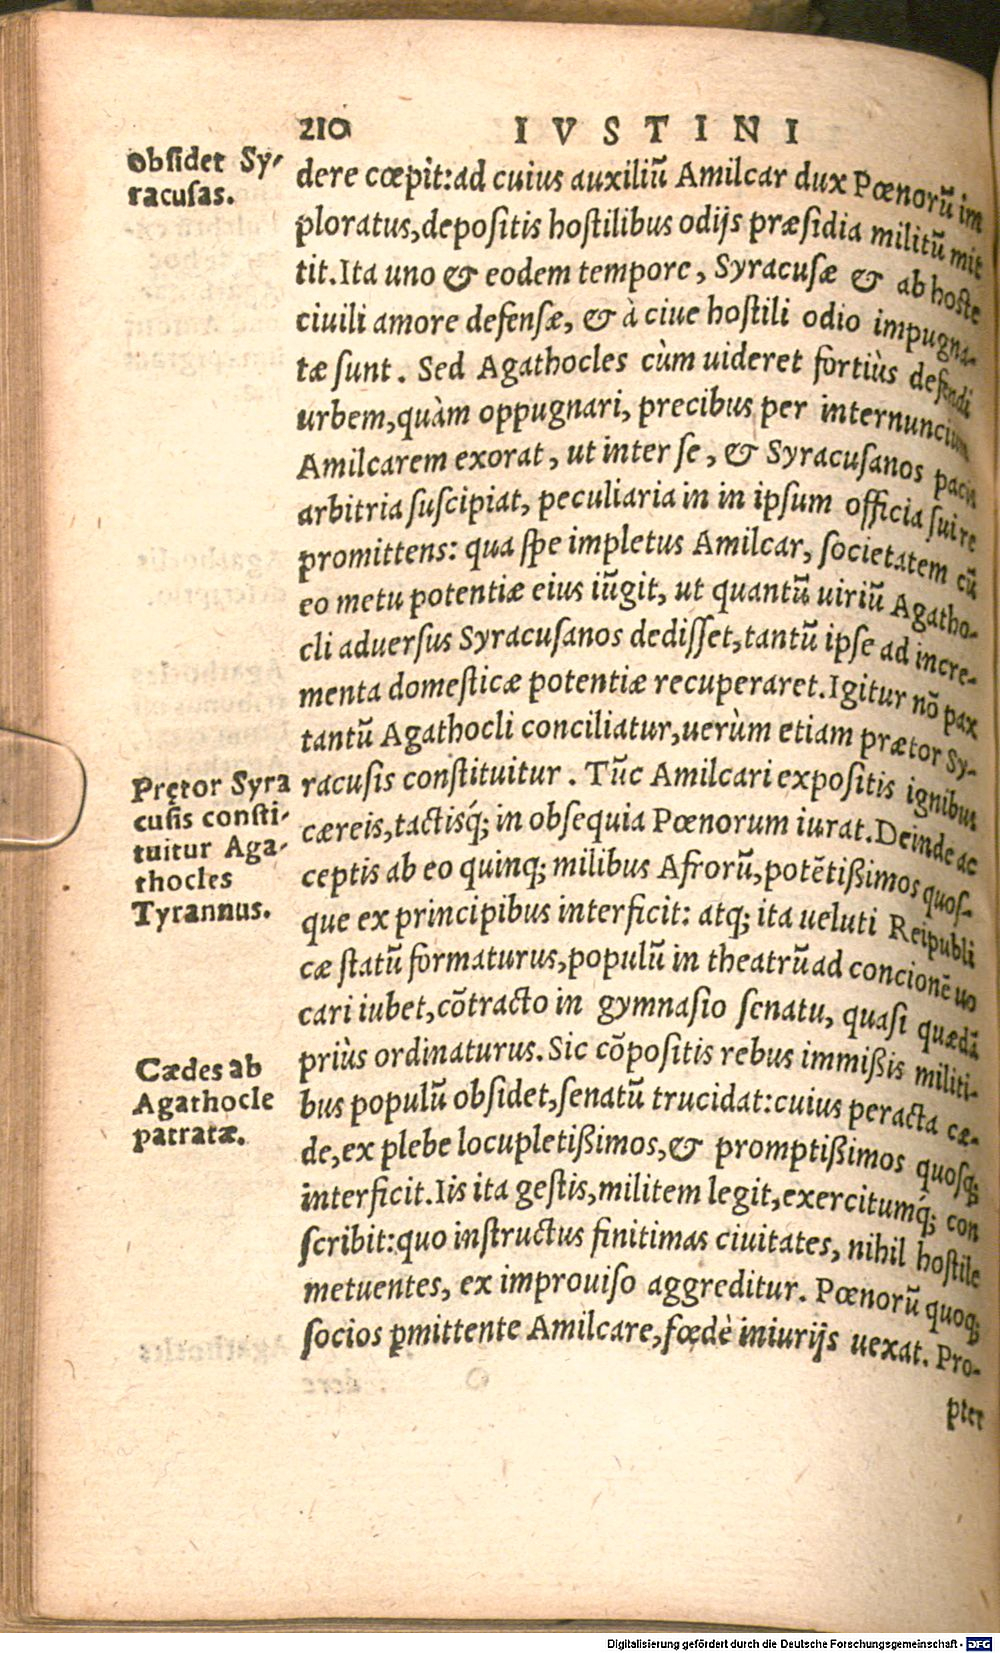 210 IVSTINI
obsidet Sy-
racusas.
dere cœpit: ad cuius auxiliũ Amilcar dux Pœnorũ im
ploratus, depositis hostilibus odijs præsidia militũ mit
tit. Ita uno & eodem tempore, Syracusæ & ab hoste
ciuili amore defensæ, & à ciue hostili odio impugna-
tæ sunt. Sed Agathocles cùm uideret fortiùs defendi
urbem, quàm oppugnari, precibus per internuncium
Amilcarem exorat, ut inter se, & Syracusanos pacis
arbitria suscipiat, peculiaria in in ipsum officia sui re
promittens: qua spe impletus Amilcar, societatem cũ
eo metu potentiæ eius iũgit, ut quantũ uiriũ Agatho-
cli aduersus Syracusanos dedisset, tantũ ipse ad incre-
menta domesticæ potentiæ recuperaret. Igitur nõ pax
tantũ Agathocli conciliatur, uerùm etiam prætor Sy-
Prętor Syra
cusis consti-
tuitur Aga-
thocles
Tyrannus.
racusis constituitur. Tũc Amilcari expositis ignibus
cæreis, tactisq́; in obsequia Pœnorum iurat. Deinde ac
ceptis ab eo quinq; milibus Afrorũ, potẽtißimos quos-
que ex principibus interficit: atq; ita ueluti Reipubli
cæ statũ formaturus, populũ in theatrũ ad concionẽ uo
cari iubet, cõtracto in gymnasio senatu, quasi quædã
priùs ordinaturus. Sic cõpositis rebus immißis militi-
Cædes ab
Agathocle
patratæ.
bus populũ obsidet, senatũ trucidat: cuius peracta cæ-
de, ex plebe locupletißimos, & promptißimos quosq;
interficit. Iis ita gestis, militem legit, exercitumq́; con
scribit: quo instructus finitimas ciuitates, nihil hostile
metuentes, ex improuiso aggreditur. Pœnorũ quoq;
socios ꝑmittente Amilcare, fœdè iniurijs uexat. Pro-
pter
Digitalisierung gefördert durch die Deutsche Forschungsgemeinschaft - DFG